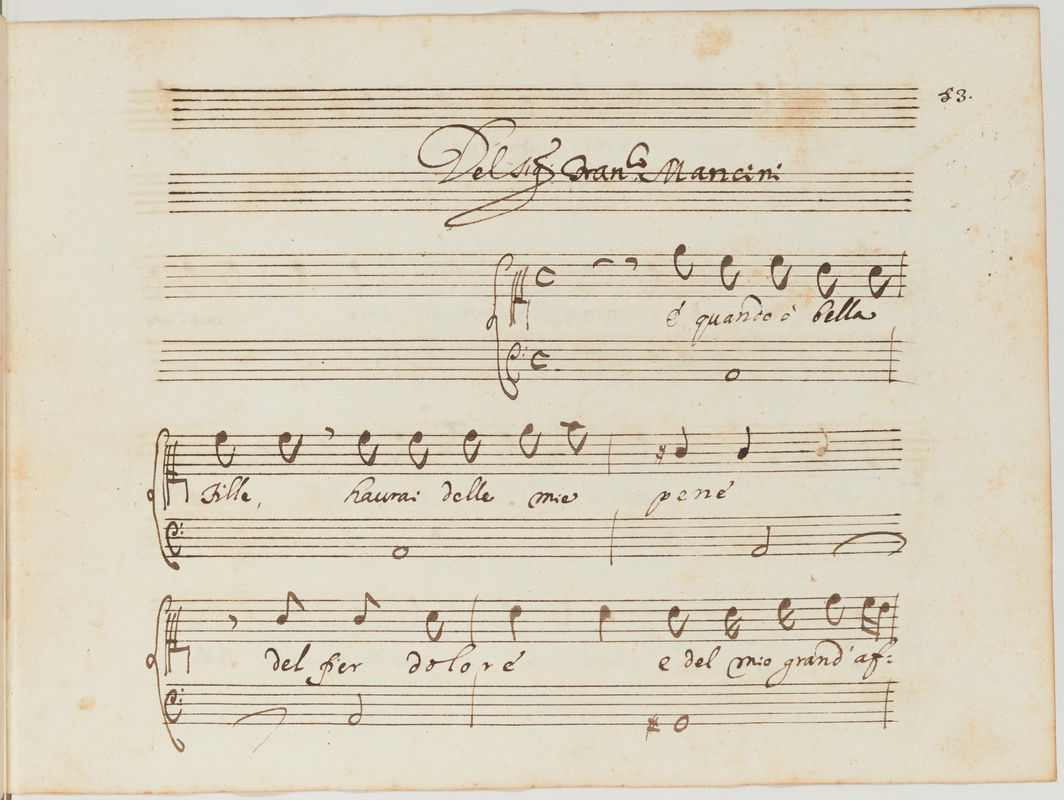 53.
Del Sig.r Fran.co Mancini
é quando ò bella
Fille, haurai delle mie pene
del fier dolore e del mio grand' af: